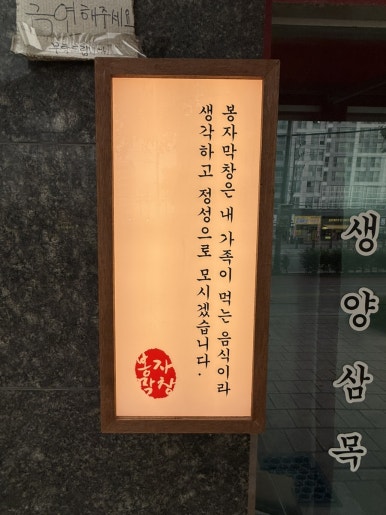 금연해주세요
봉자막창은 내 가족이 먹는 음식이라
생각하고 정성으로 모시겠습니다.
봉자
막창
생양삼목